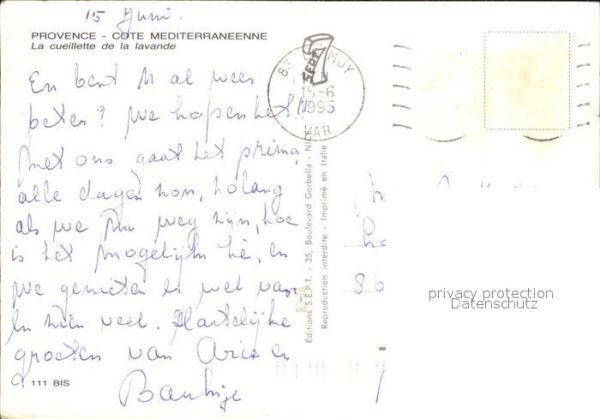 15 Juni.
PROVENCE - COTE MEDITERRANEENNE
La cueillette de la lavande
En bent U al wees
beter? we hopen het!
Met ons gaat het prima,
alle dagen zon, zolang
als we weg zijn, hoe
is het mogelijk hè, en
we genieten er wel van
en zien veel. Hartelijke
groeten van Arie en
111 BIS
83 MUY
SEPT.
15-6
1995
VAR
Editions S.E.P.T. - 35, Boulevard Gorbella - NICE
Reproduction interdite - Imprimé en Italie
86
privacy protection
Datenschutz